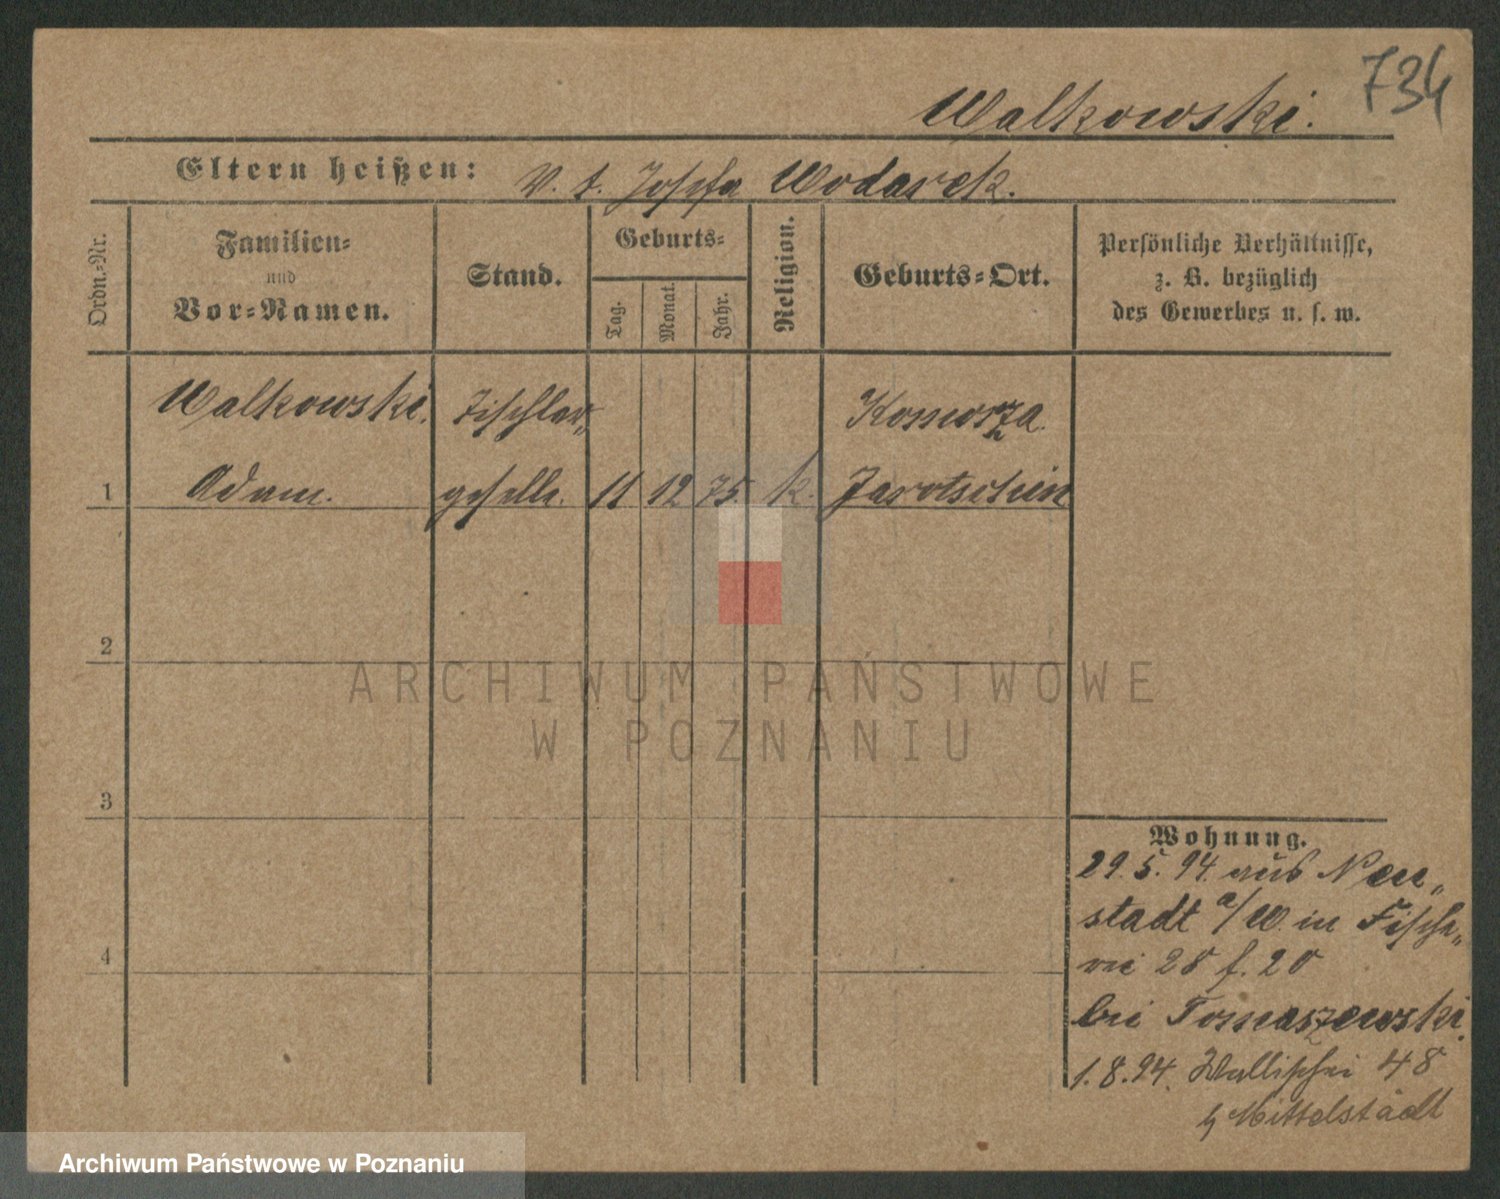 734
Walkowski.
Eltern heißen: V. t. Josefa Wodarck.
Ordn.-Nr.
Familien-
und
Vor-Namen.
Stand.
Geburts-
Tag.
Monat.
Jahr.
Religion.
Geburts-Ort.
Persönliche Verhältnisse,
z. B. bezüglich
des Gewerbes u. s. w.
Walkowski. Tischler- Komorza
1 Adam. geselle. 11 12 75. k. Jarotschin
2
3
4
Wohnung.
29. 5. 94. aus Neu-
stadt a/W. in Fische-
rei 28 f. 20
bei Tomaszewski.
1. 8. 94. Wallischei 48
b Mittelstädt
ARCHIWUM PAŃSTWOWE
W POZNANIU
Archiwum Państwowe w Poznaniu